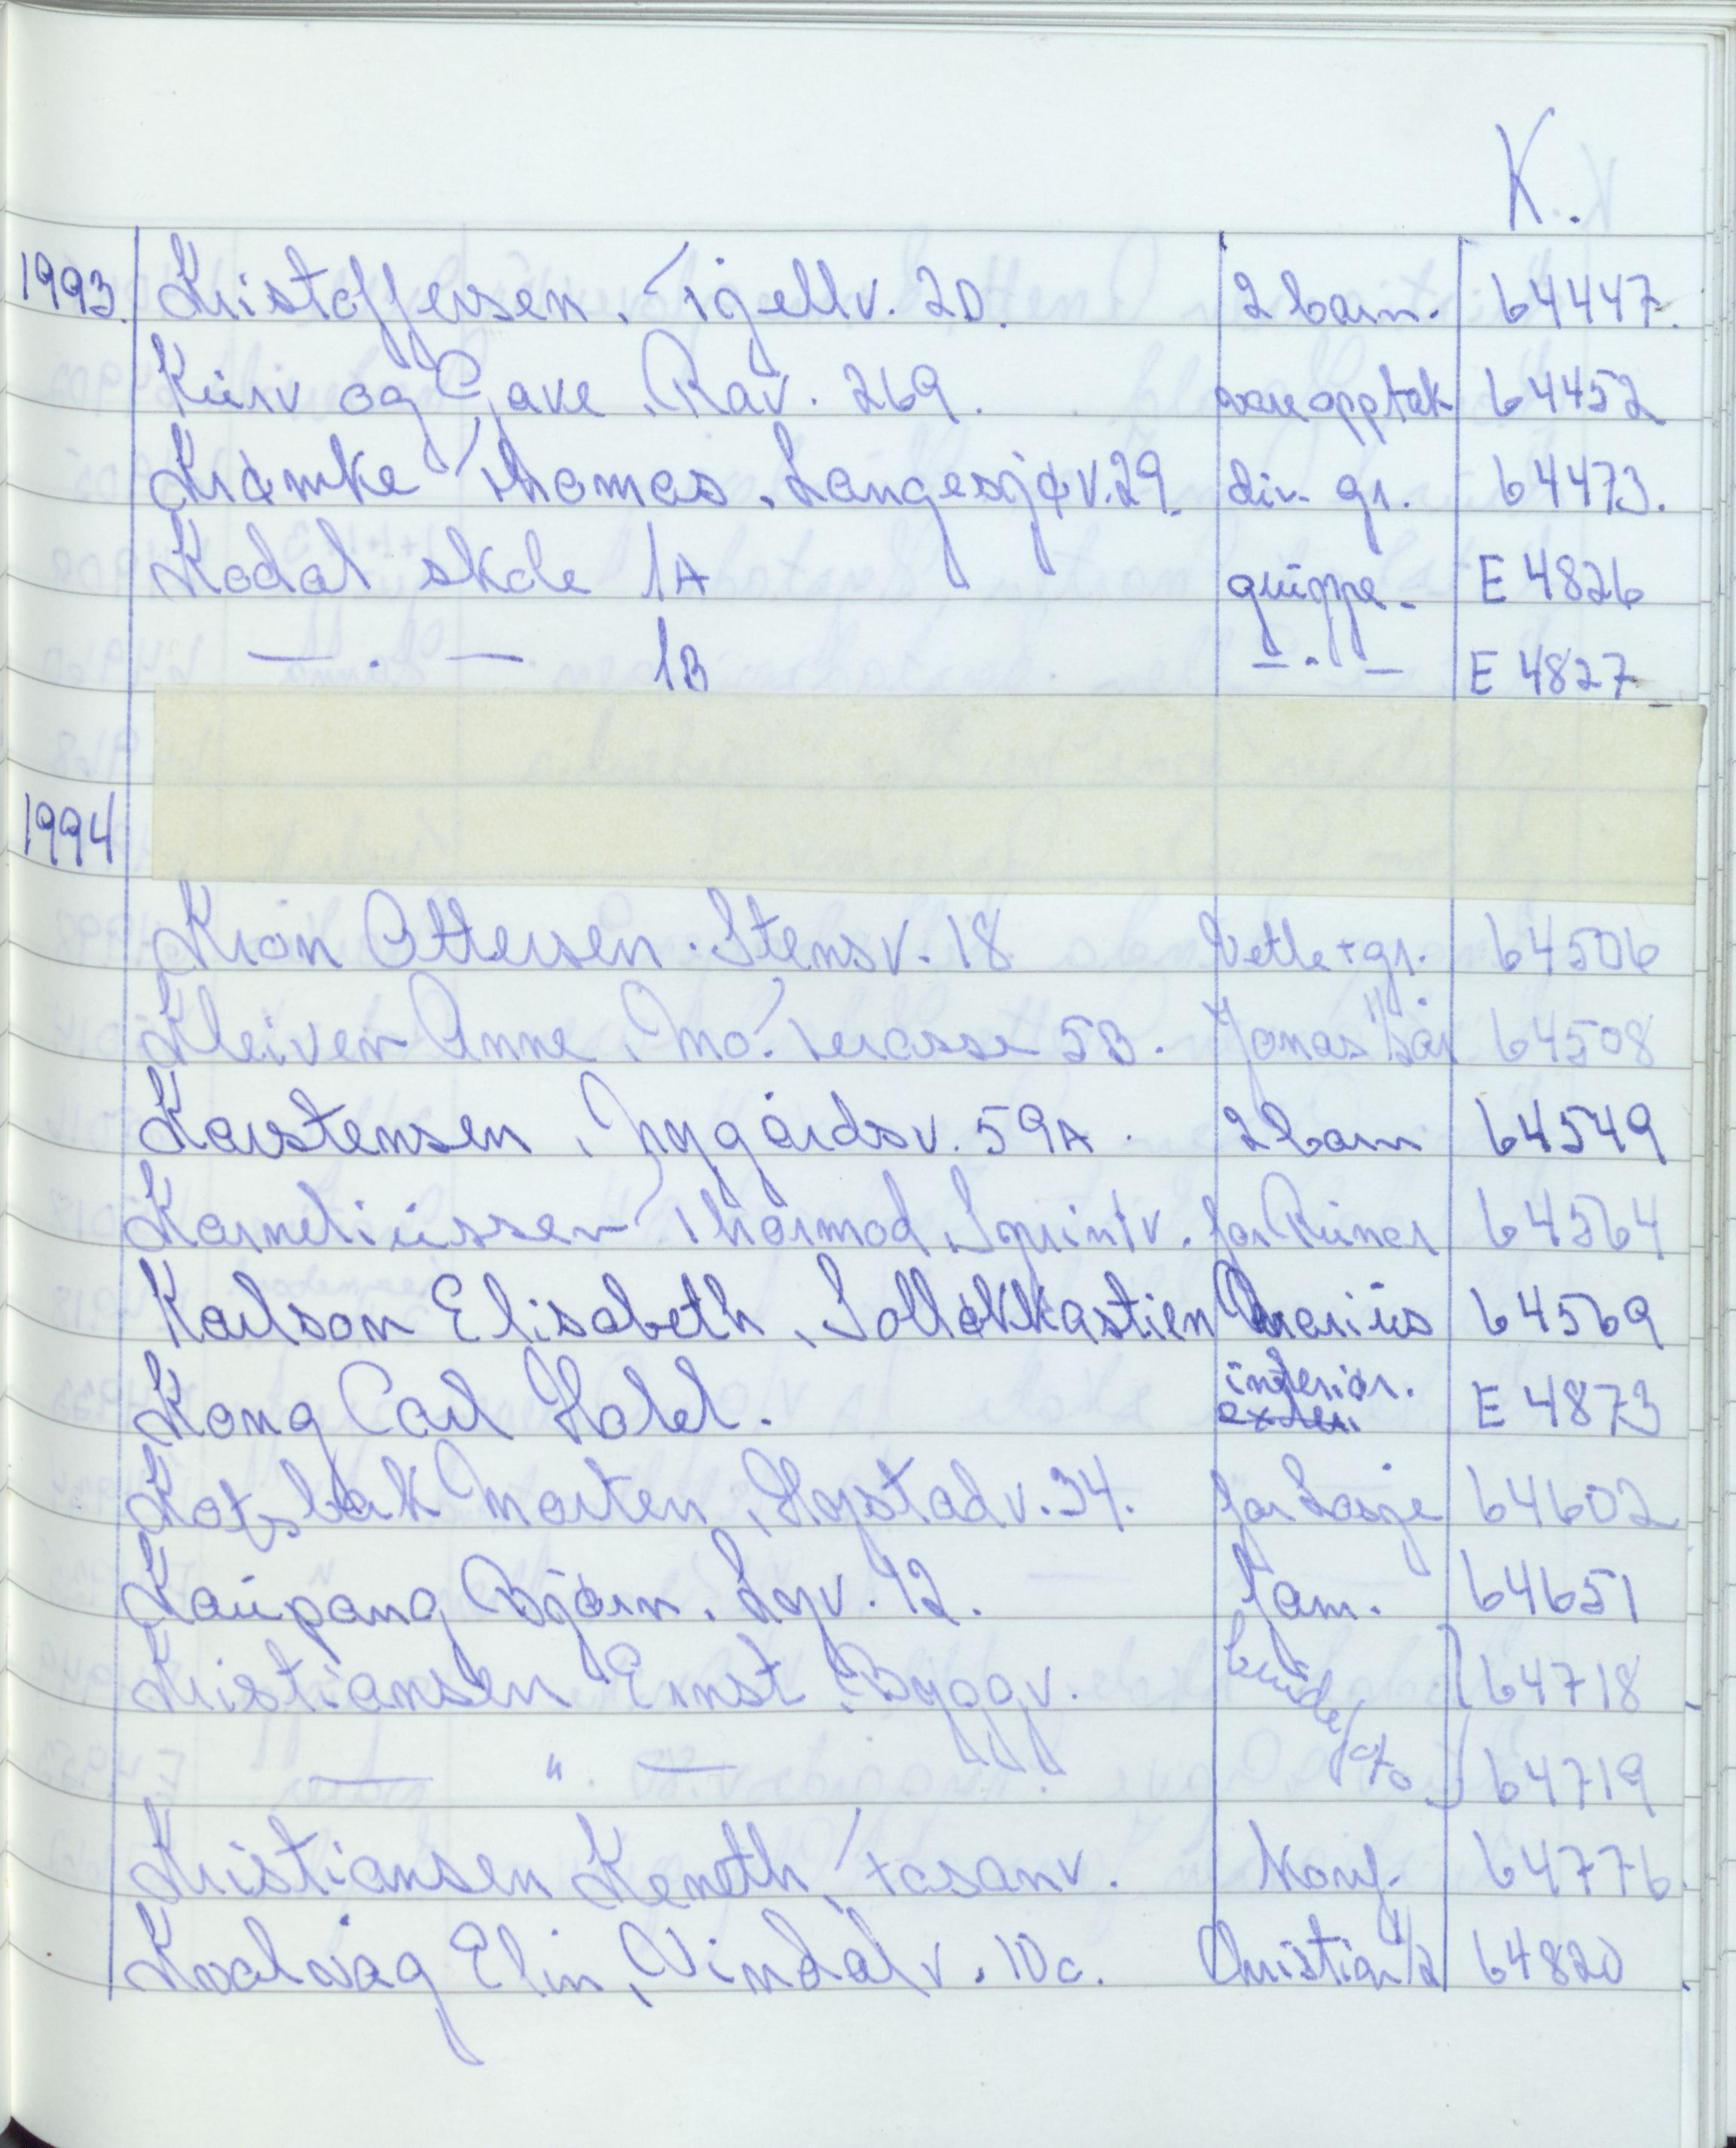 K.
1993. Kristoffersen, Tjellv. 20. 2 barn. 64447.
Kurv og Gave, Rav. 269. vareopptak 64452
Krömke Thomas, Langesjøv. 29. div. gr. 64473.
Kodal skole 1A gruppe. E 4826
— . — 1B — . — E 4827
1994
Kron Ottersen. Stensv. 18 Vetle + gr. 64506
Kleiven Anne, Mo. Terasse 5B. Jonas 64508
Karstensen, Nygårdsv. 59A. 2 barn 64549
Korneliussen Thormod, Sprintv. for Runar 64564
Karlson Elisabeth, Solløkkastien Marius 64569
Kong Carl Hotel. interiør. exteri E 4873
Morten, Hystadv. 34. for Lasse 64602
Kaupang Bjørn. Lyv. 12. fam. 64651
Kristiansen Ernst, Byggv. brude/ 64718
— " — 64719
Kristiansen Keneth, konf. 64776.
Kvalvåg Elin, Vindalv. 10c. Christian 1/2 64820